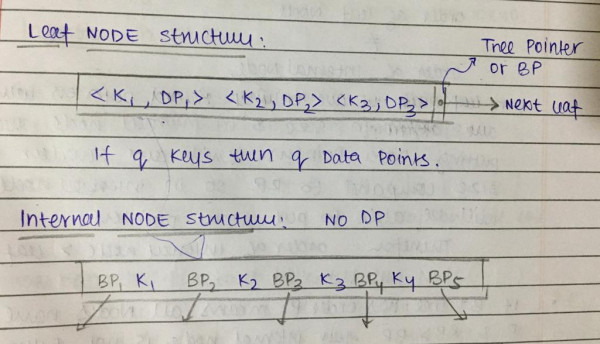 Leaf NODE structure:
Tree Pointer
or BP
<K₁, DP₁> <K₂, DP₂> <K₃, DP₃> → Next leaf
If q keys then q Data Points.
Internal NODE structure: NO DP
BP₁ K₁ BP₂ K₂ BP₃ K₃ BP₄ K₄ BP₅